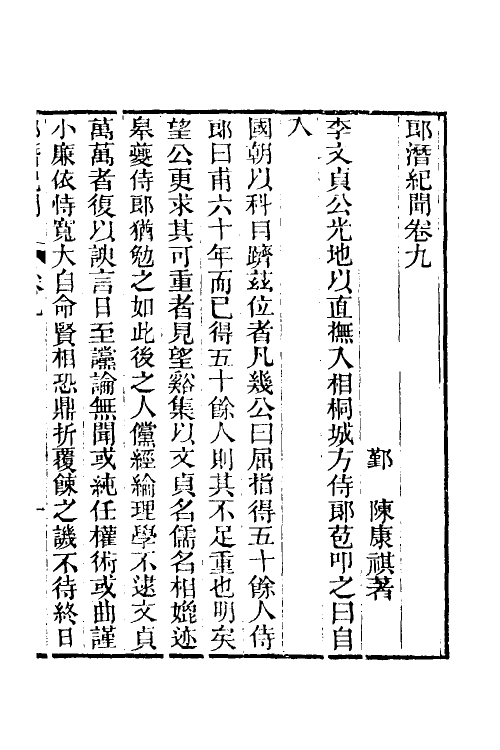 郎潛紀聞卷九
鄞　陳康祺著
李文貞公光地以直撫入相桐城方侍郎苞叩之曰自
入
國朝以科目躋茲位者凡幾公曰屈指得五十餘人侍
郎曰甫六十年而已得五十餘人則其不足重也明矣
望公更求其可重者見望谿集以文貞名儒名相媲迹
皋夔侍郎猶勉之如此後之人儻經綸理學不逮文貞
萬萬者復以諛言日至讜論無聞或純任權術或曲謹
小廉依恃寬大自命賢相恐鼎折覆餗之譏不待終日